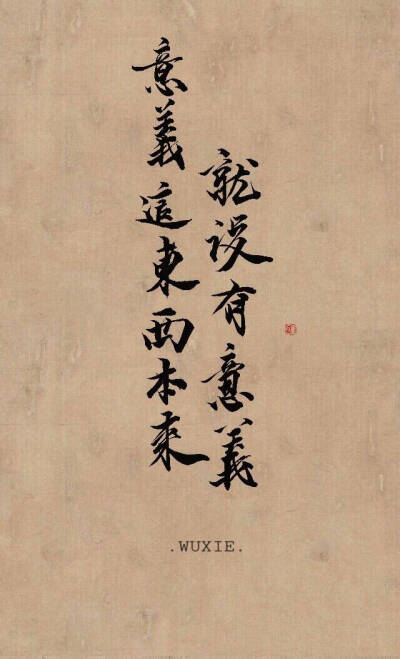 意義這東西本來
就没有意義
.WUXIE.